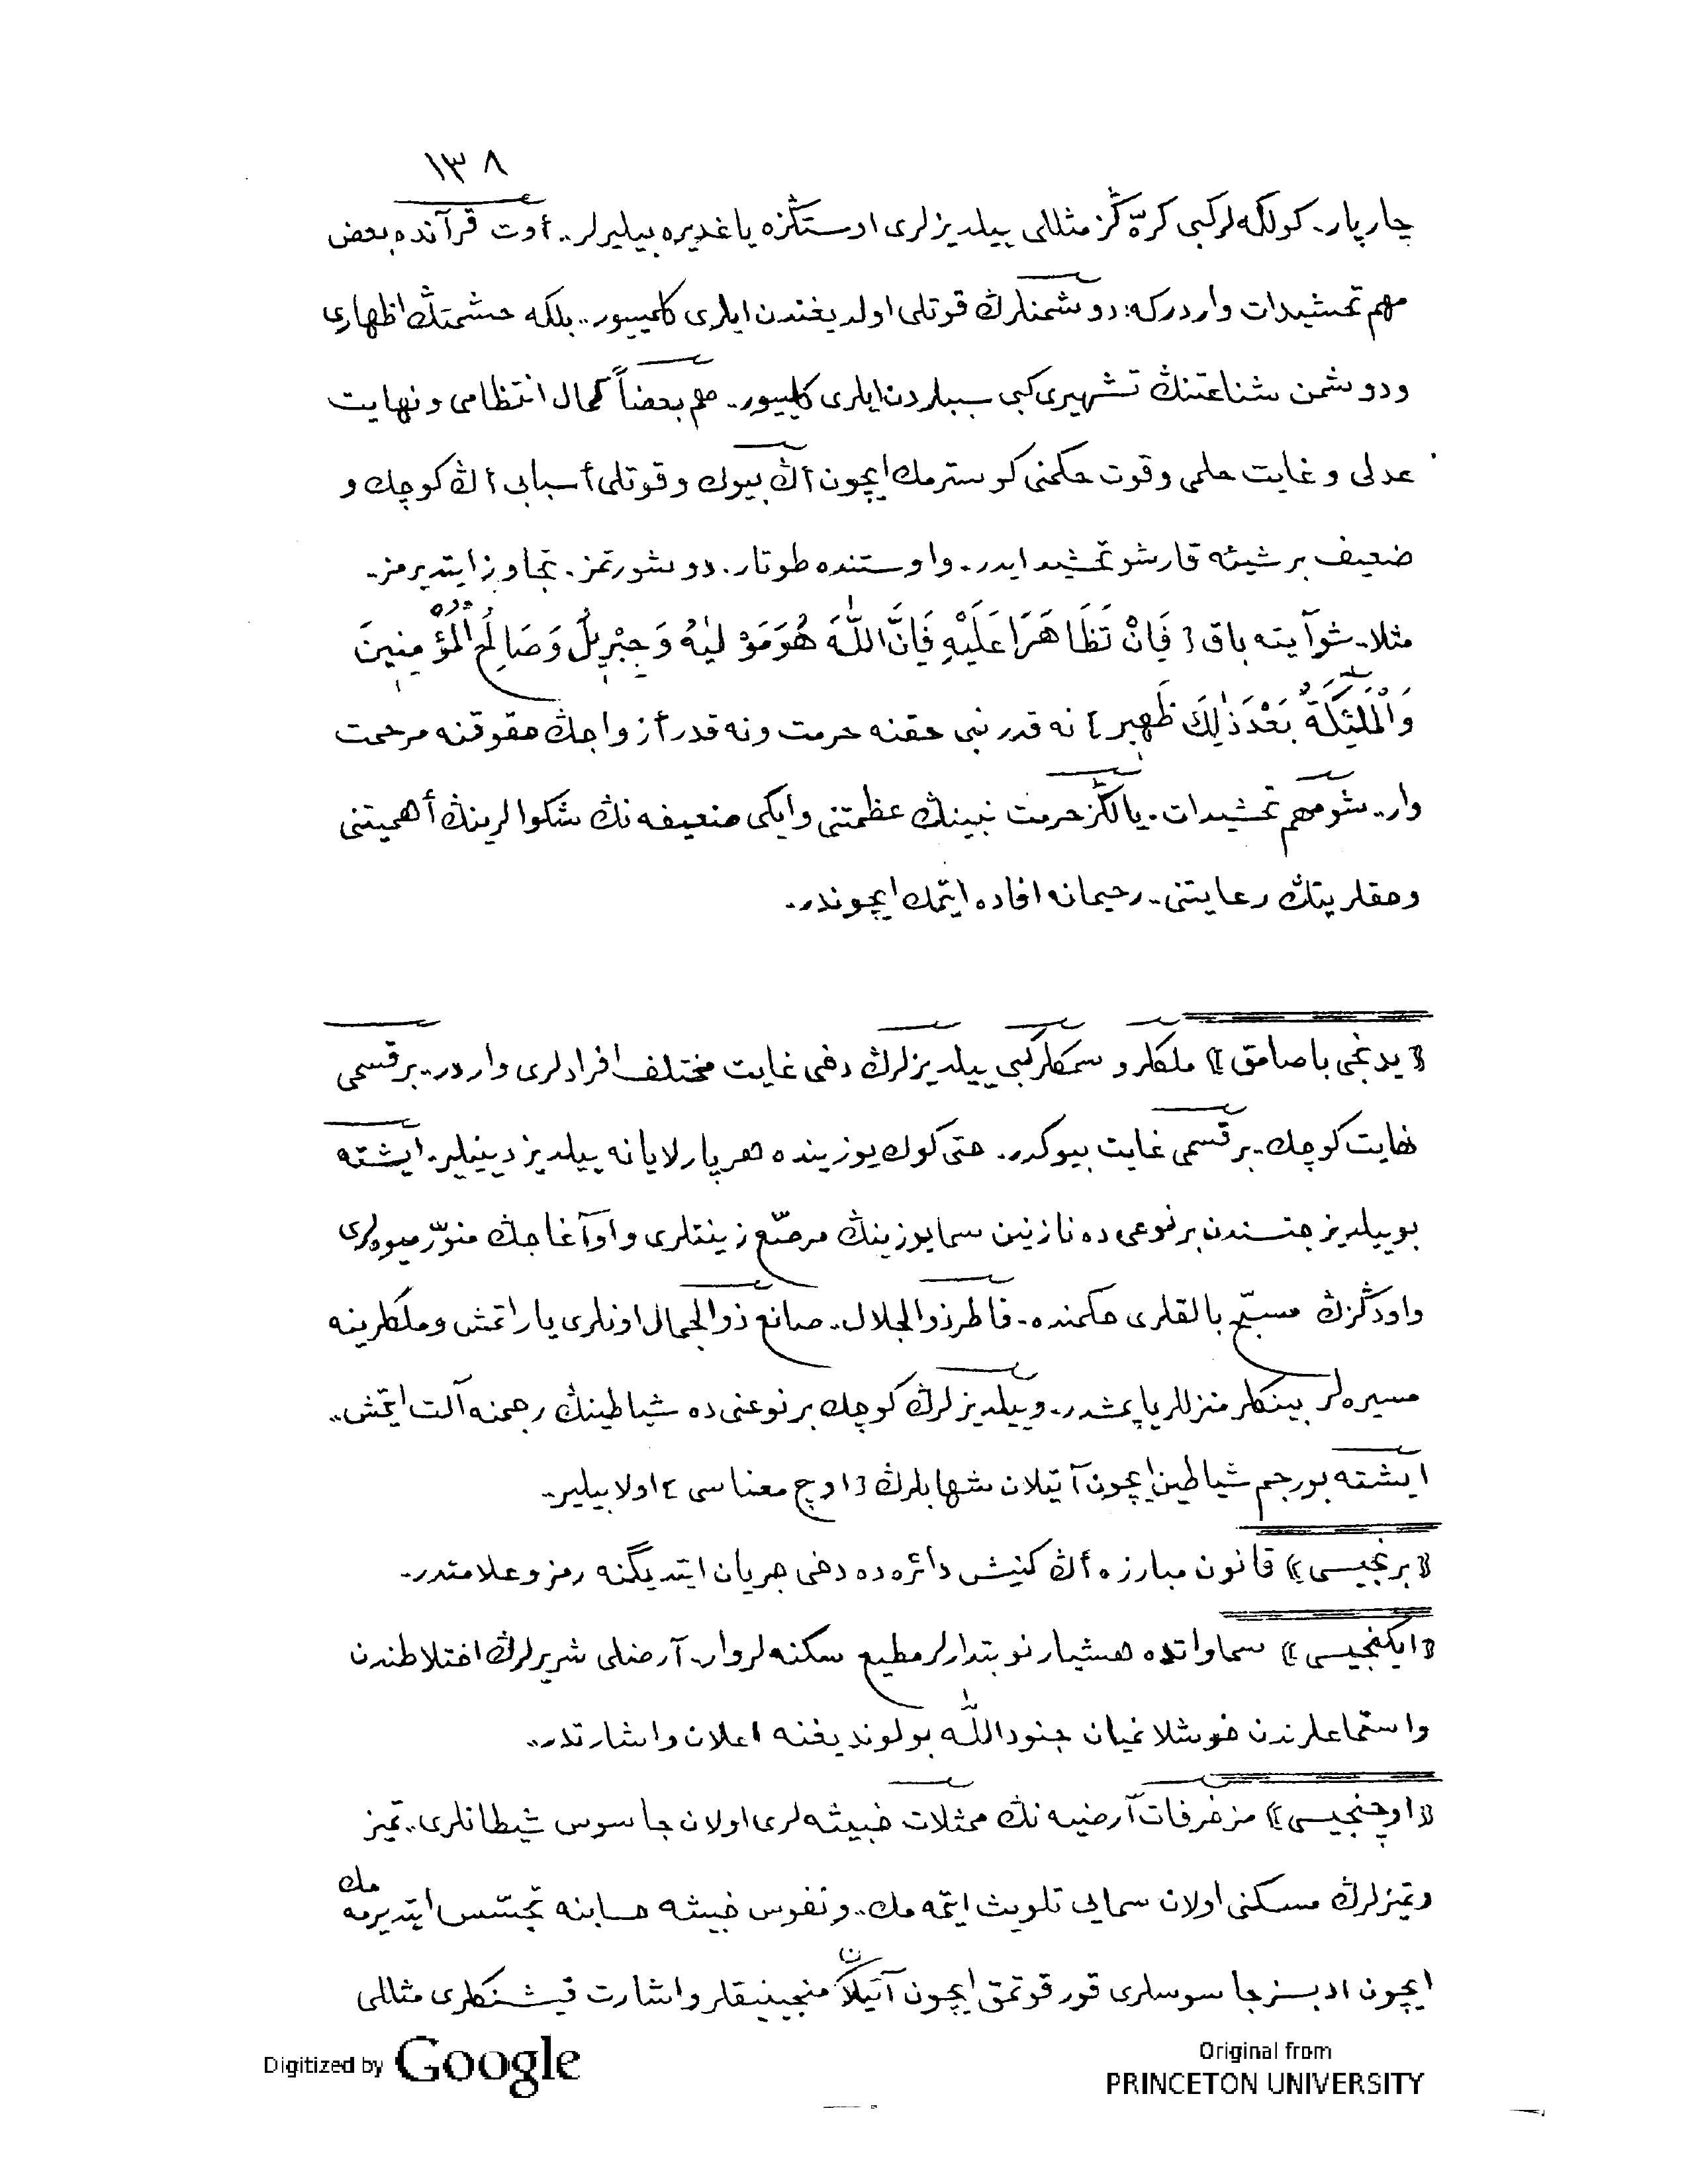 ١٣٨
چارپار. كولكه‌لر كبى كرّه‌ڭز مثللى ييلديزلرى اوستڭزه ياغديره بيليرلر.. أوت قرآنده بعض
مهم تحشيدات واردركه: دوشمنلرڭ قوتلى اولديغندن ايلرى كلميور.. بلكه حشمتڭ اظهارى
ودوشمن شناعتنڭ تشهيرى كبى سببلردن ايلرى كلييور. هم بعضاً كمال انتظامى و نهايت
عدلى و غايت حلمى وقوت حكمنى كوسترمك ايچون اڭ بيوك وقوتلى أسبابى اڭ كوچك و
ضعيف بر شيئه قارشو تحشيد ايدر. واوستنده طوتار. دوشورتمز. تجاوز ايتديرمز.
مثلا. شو آيته باق [ فَاِنْ تَظَاهَرَا عَلَيْهِ فَاِنَّ اللّٰهَ هُوَ مَوْلٰيهُ وَجِبْرِيلُ وَصَالِحُ الْمُؤْمِنِينَ
وَالْمَلٰئِكَةُ بَعْدَ ذٰلِكَ ظَهِيرٌ ] نه قدر نبى حقنه حرمت ونه قدر أزواجڭ حقوقنه مرحمت
وار.. شو مهم تحشيدات. يالڭز حرمت نبينڭ عظمتنى وايكى ضعيفه نڭ شكوالرينڭ أهميتنى
وحقلرينڭ رعايتنى.. رحيمانه افاده ايتمك ايچوندر.
﴿ يدنجى باصامق ﴾ ملكلر و سمكلر كبى ييلديزلرڭ دخى غايت مختلف افرادلرى واردر.. بر قسمى
نهايت كوچك. بر قسمى غايت بيوكدر. حتى كوك يوزينده هر پارلايانه ييلديز دينيلير. ايشته
بو ييلديز جنسندن بر نوعى ده نازنين سما يوزينڭ مرصّع زينتلرى واو آغاجڭ منوّر ميوه‌لرى
واو دڭزڭ مسبّح بالقلرى حكمنده. فاطر ذوالجلال.. صانع ذوالجمال اونلرى ياراتمش وملكلرينه
مسيره‌لر بينكلر منزللر ياپمشدر.. وييلديزلرڭ كوچك بر نوعنى ده شياطينڭ رجمنه آلت ايتمش..
ايشته بو رجم شياطين ايچون آتيلان شهابلرڭ [ اوچ معناسى ] اولابيلير..
﴿ برنجيسى ﴾ قانون مبارزه أڭ كنيش دائره ده دخى جريان ايتديگنه رمز وعلامتدر.
﴿ ايكنجيسى ﴾ سماواتده هشيار نوبتدارلر مطيع سكنه‌لر وار. آرضلى شريرلرڭ اختلاطندن
واستماعلرندن خوشلانميان جنود اللّٰه بولونديغنه اعلان واشارتدر..
﴿ اوچنجيسى ﴾ مزخرفات آرضيه نڭ ممثلات خبيثه‌لرى اولان جاسوس شيطانلرى.. تميز
وتميزلرڭ مسكنى اولان سمايى تلويث ايتمه مك.. ونفوس خبيثه حسابنه تجسّس ايتديرمه مك
ايچون ادبسز جاسوسلرى قورقوتمق ايچون آتيلان منجينيقلر واشارت فيشنكلرى مثللى
Digitized by Google
Original from
PRINCETON UNIVERSITY